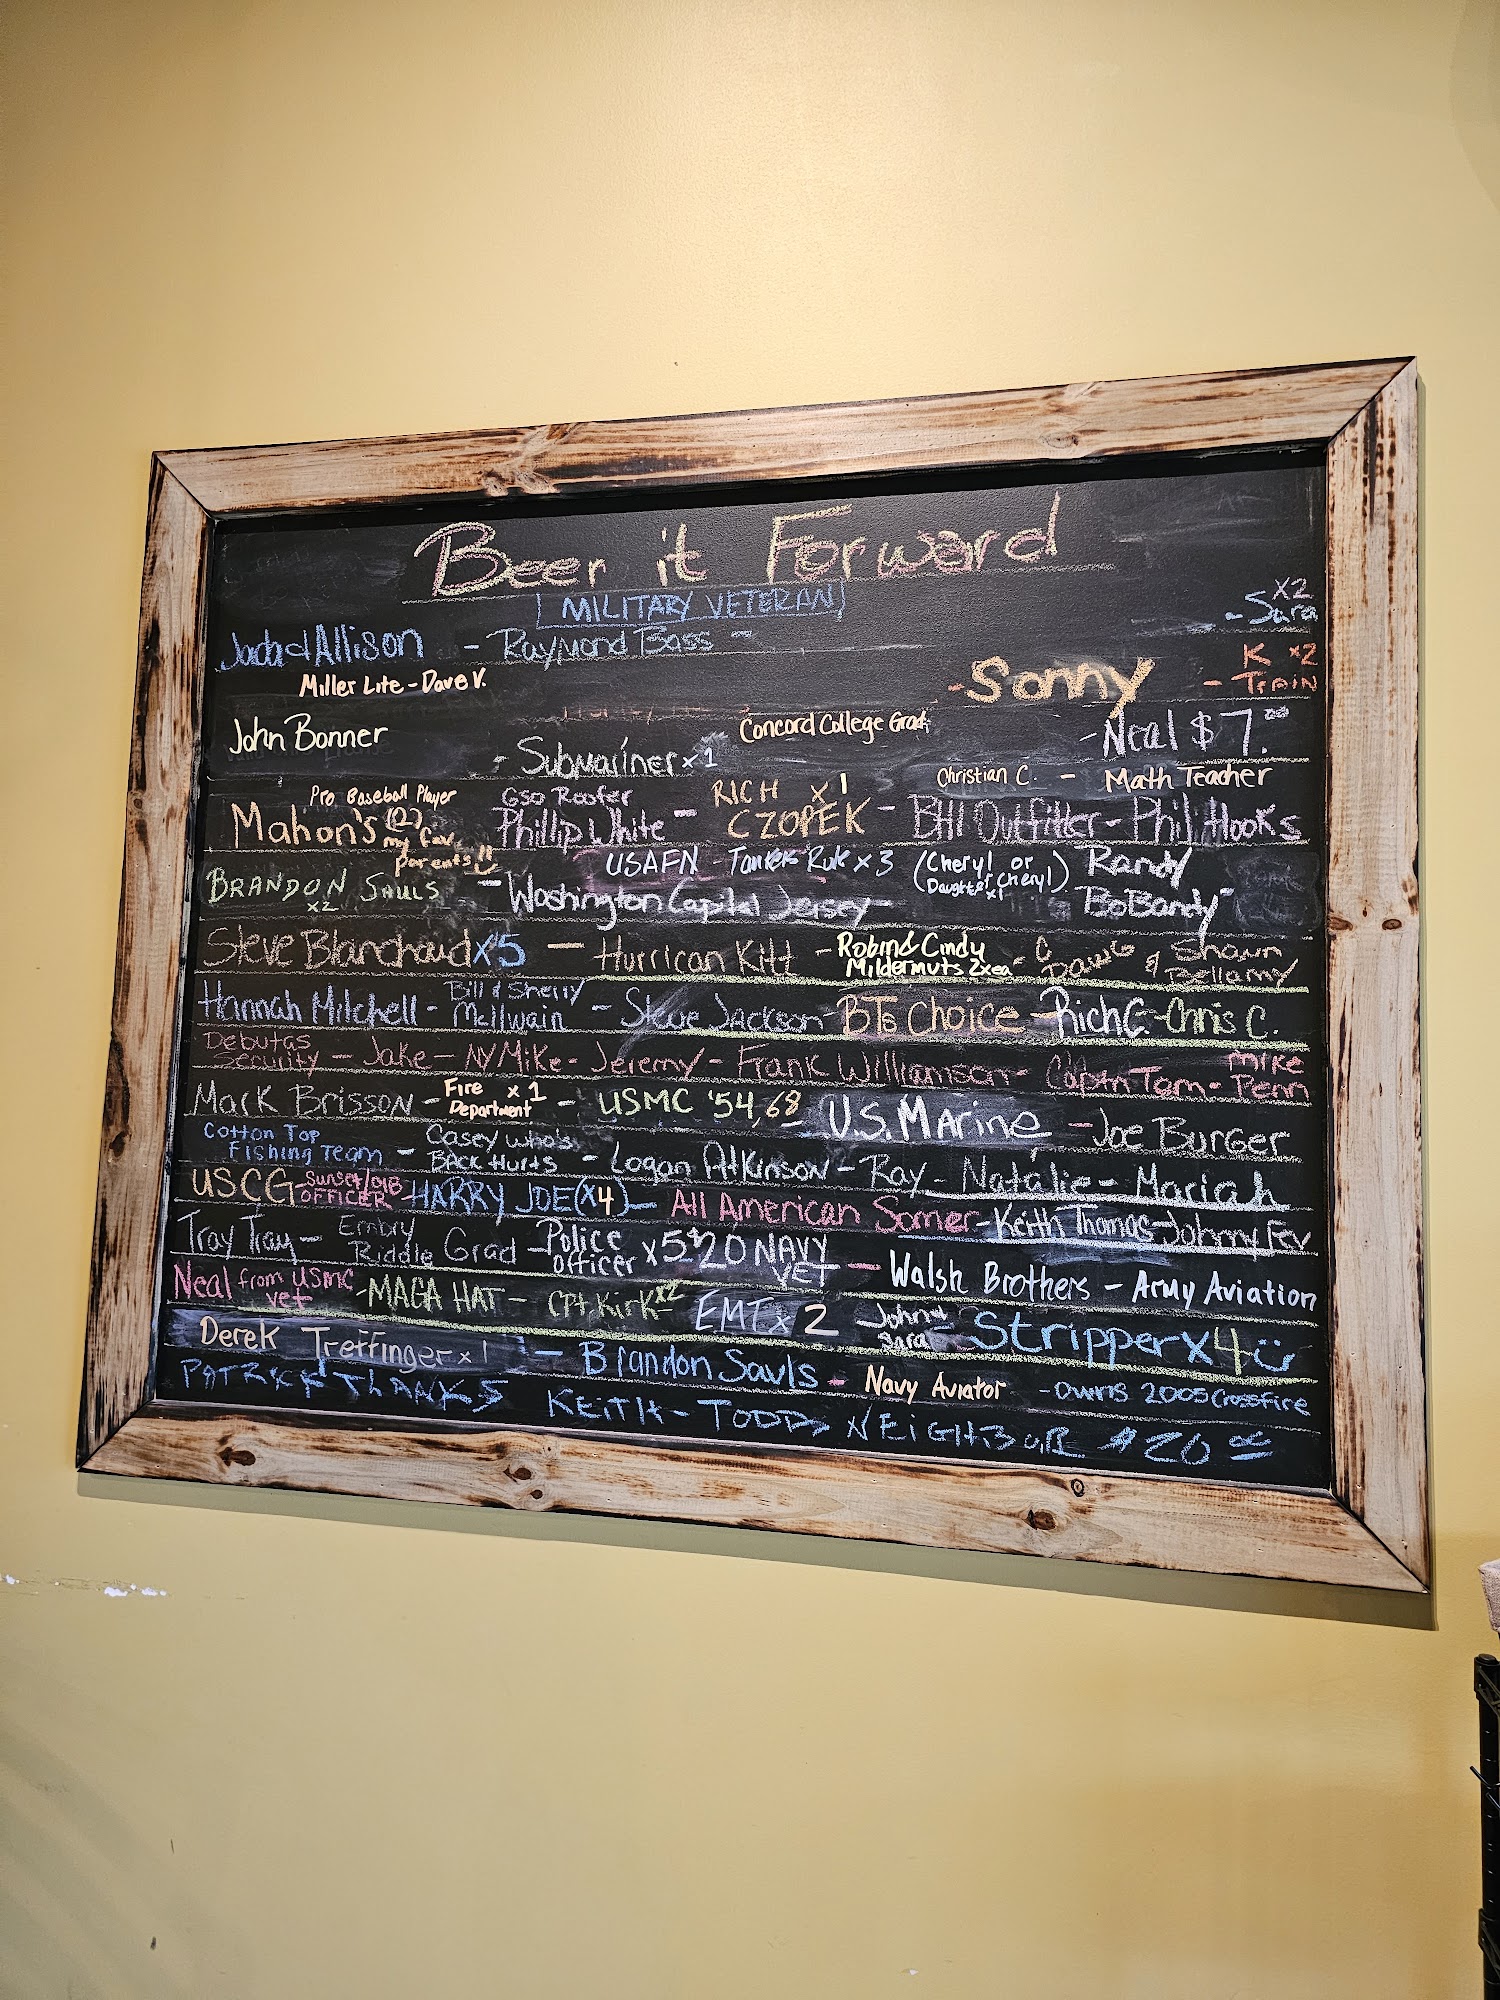 Beer it Forward
MILITARY VETERAN
x2
- Sara
Allison - Raymond Bass -
K x2
- TrAiN
Miller Lite - Dave V.
- Sonny
John Bonner
Concord College Grad
- Neal $7.00
- Submariner x 1
Christian C. - Math Teacher
Pro Baseball Player
Mahon's (2) my fav. parents!!
Gso Roofer
Phillip White -
RICH x 1
CZOPEK -
BHI Outfitter - Phil Hooks
USAFN - Tanker Rule x 3 (Cheryl or Daughter Cheryl) x1
Randy BoBandy
BRANDON SAULS x2 - Washington Capital Jersey -
Steve Blanchaud x5 - Hurrican Kitt - Robin & Cindy Mildermuts 2xea - C Davis & Shawn Bellamy
Hannah Mitchell - Bill & Sherry McIlwain - Steve Jackson - BTs Choice - Rich C. - Chris C.
Debutas Security - Jake - NY Mike - Jeremy - Frank Williamson - Captn Tom - Mike Penn
Mark Brisson - Fire Department x 1 - USMC '54, 68 - U.S. Marine - Joe Burger
Cotton Top Fishing Team - Casey who's Back Hurts - Logan Atkinson - Ray - Natalie - Mariah
USCG - Sunset/OIB OFFICER - HARRY JOE (x4) - All American Somer - Keith Thomas - Johnny Fev
Tray Tray - Embry Riddle Grad - Police officer x 5 $20 NAVY VET - Walsh Brothers - Army Aviation
Neal from USMC vet - MAGA HAT - CPt. Kirk x2 - EMT x 2 John & Sara - Stripper x4
Derek Treffinger x 1 - Brandon Sauls - Navy Aviator - owns 2005 Crossfire
PATRICK THANKS KEITH - TODDS NEIGHBOR $20 00